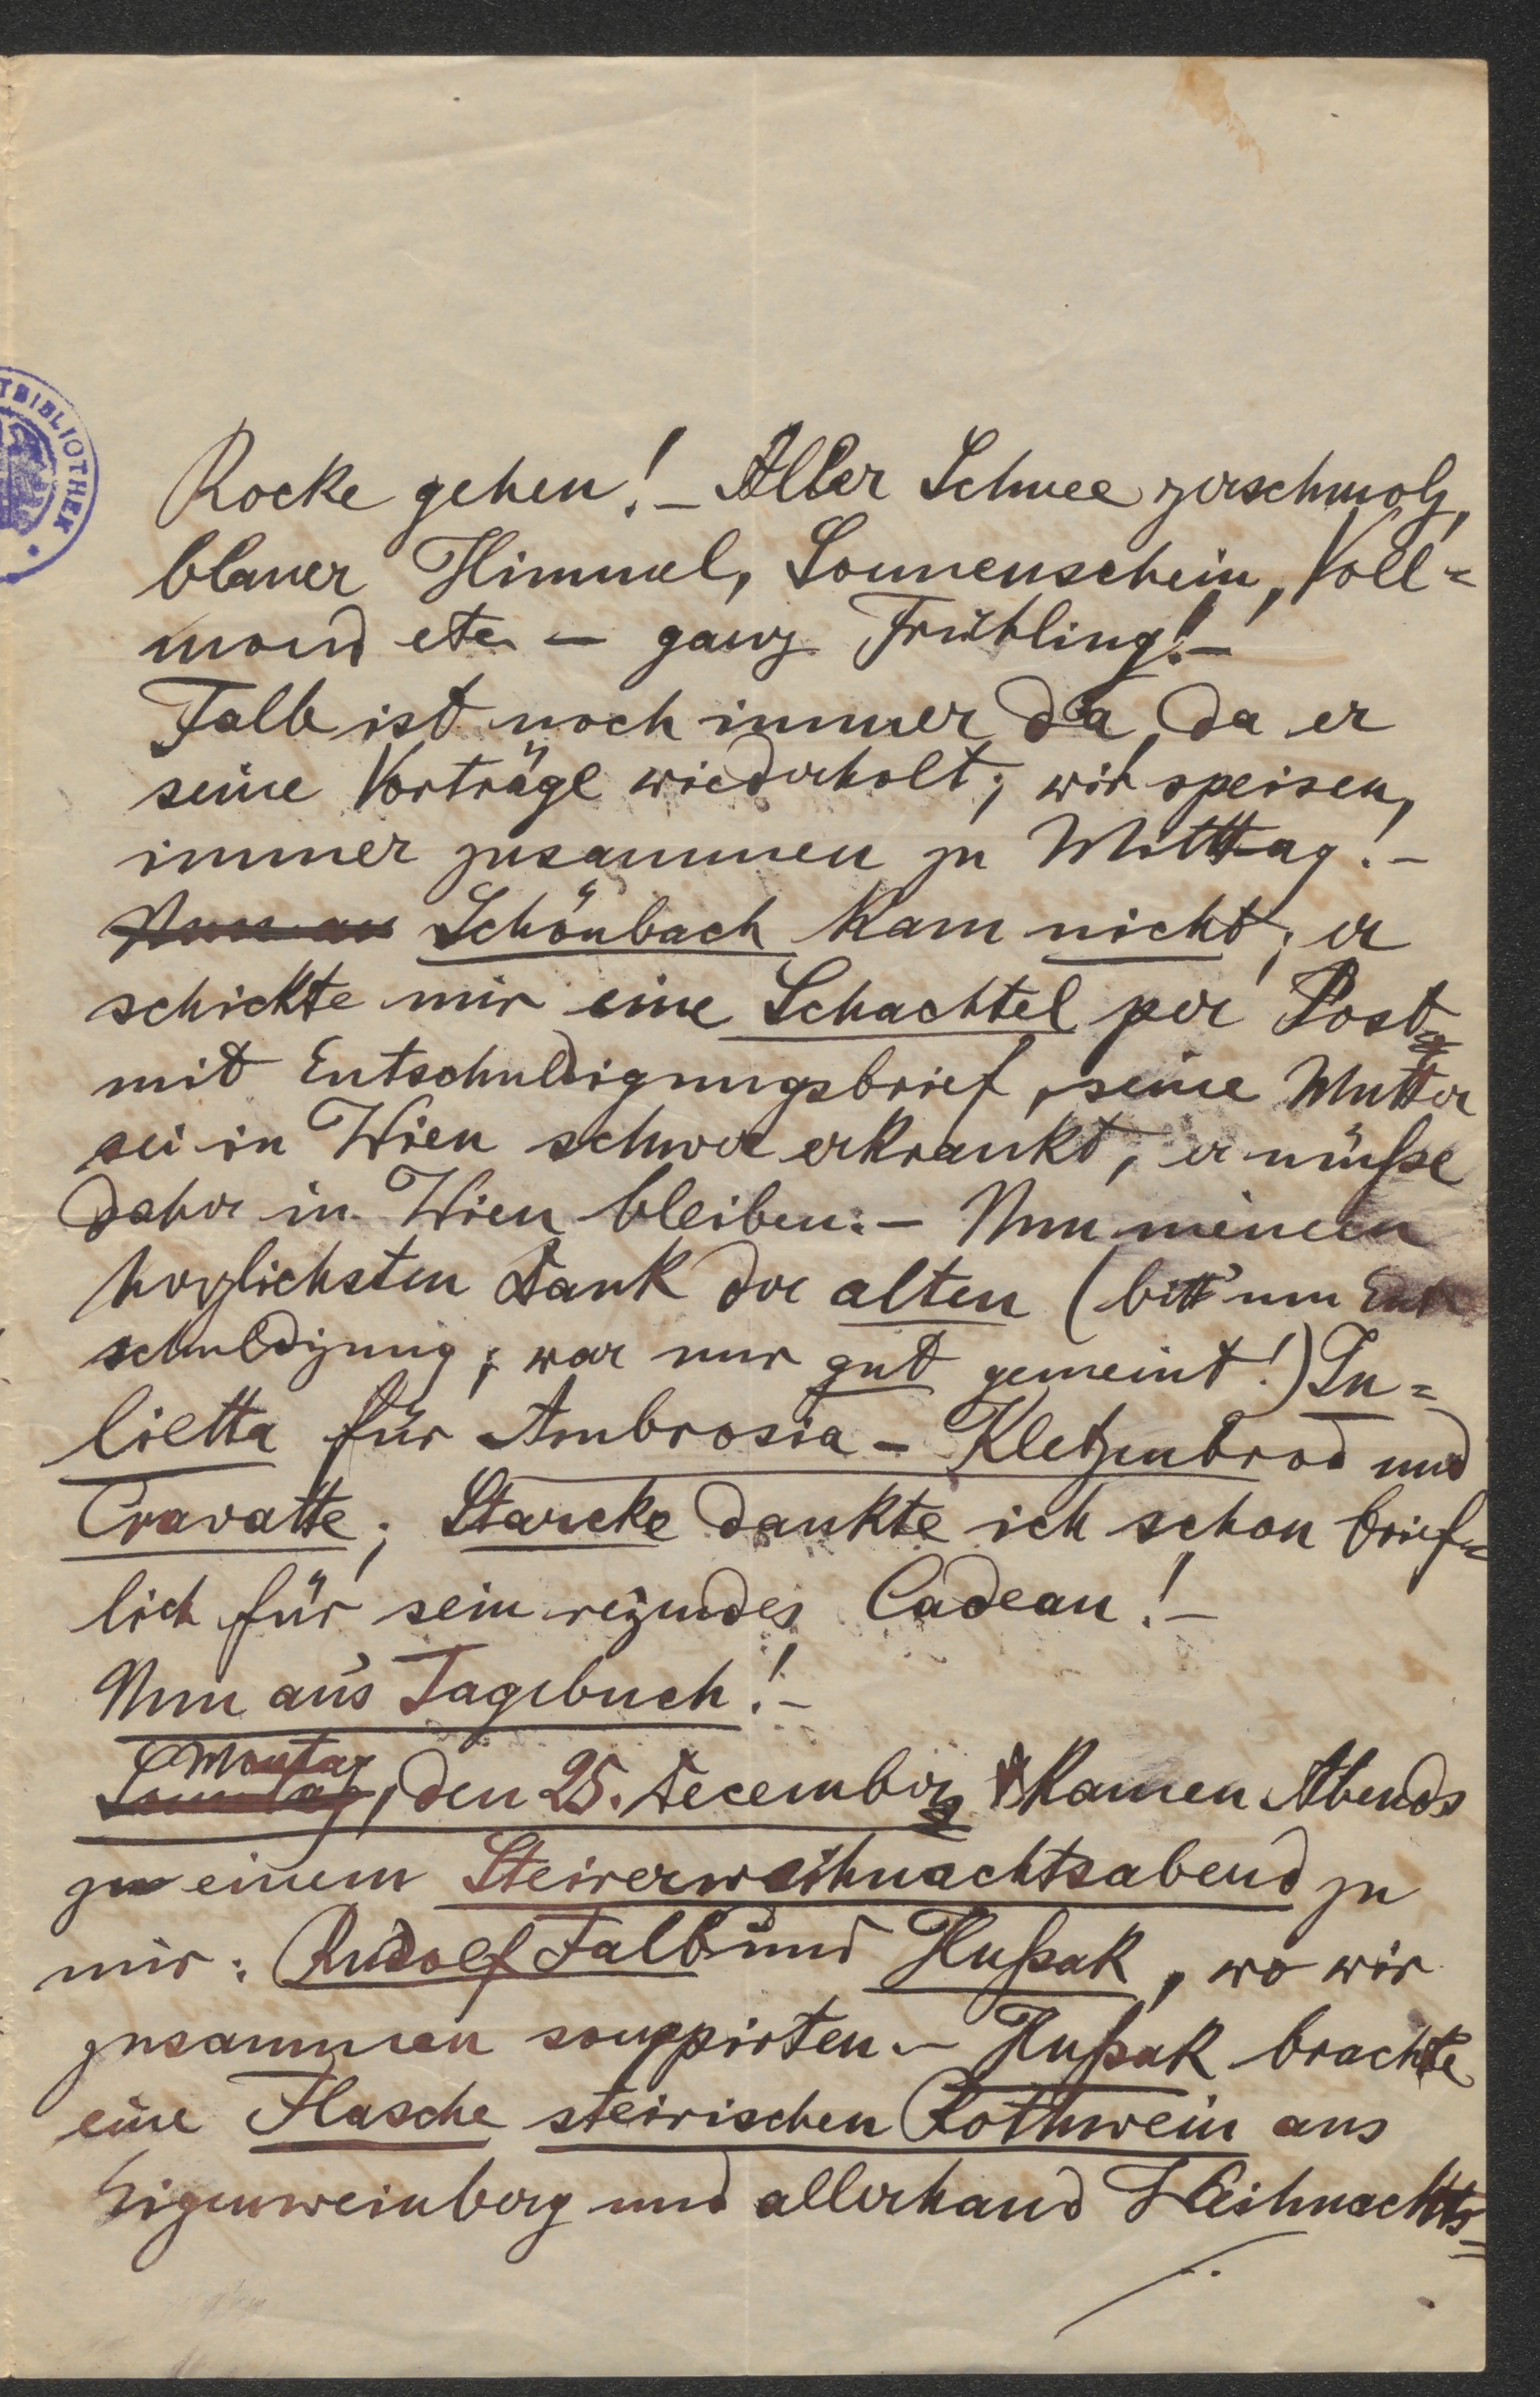 TBIBLIOTHEK *
Rocke gehen! – Aller Schnee zerschmolz,
blauer Himmel, Sonnenschein, Voll=
mond etc – ganz Frühling! –
Falb ist noch immer da, da er
seine Vorträge wiederholt; wir speisen,
immer zusammen zu Mittag! –
Schönbach kam nicht; er
schickte mir eine Schachtel per Post
mit Entschuldigungsbrief, seine Mutter
sei in Wien schwer erkrankt, er müße
daher in Wien bleiben. – Nun meinen
herzlichsten Dank der alten (bitt' um Ent
schuldigung; war nur gut gemeint!) Ju=
lietta für Ambrosia – Kletzenbrod und
Cravatte; Starcke dankte ich schon brief=
lich für sein reizendes Cadeau! –
Nun aus Tagebuch! –
Montag
Sonntag, den 25. December kamen Abends
zu einem Steirerweihnachtsabend zu
mir: Rudolf Falb und Hußak, wo wir
zusammen soupirten. – Hußak brachte
eine Flasche steirischen Rothwein aus
Eigenweinberg und allerhand Weihnachts=